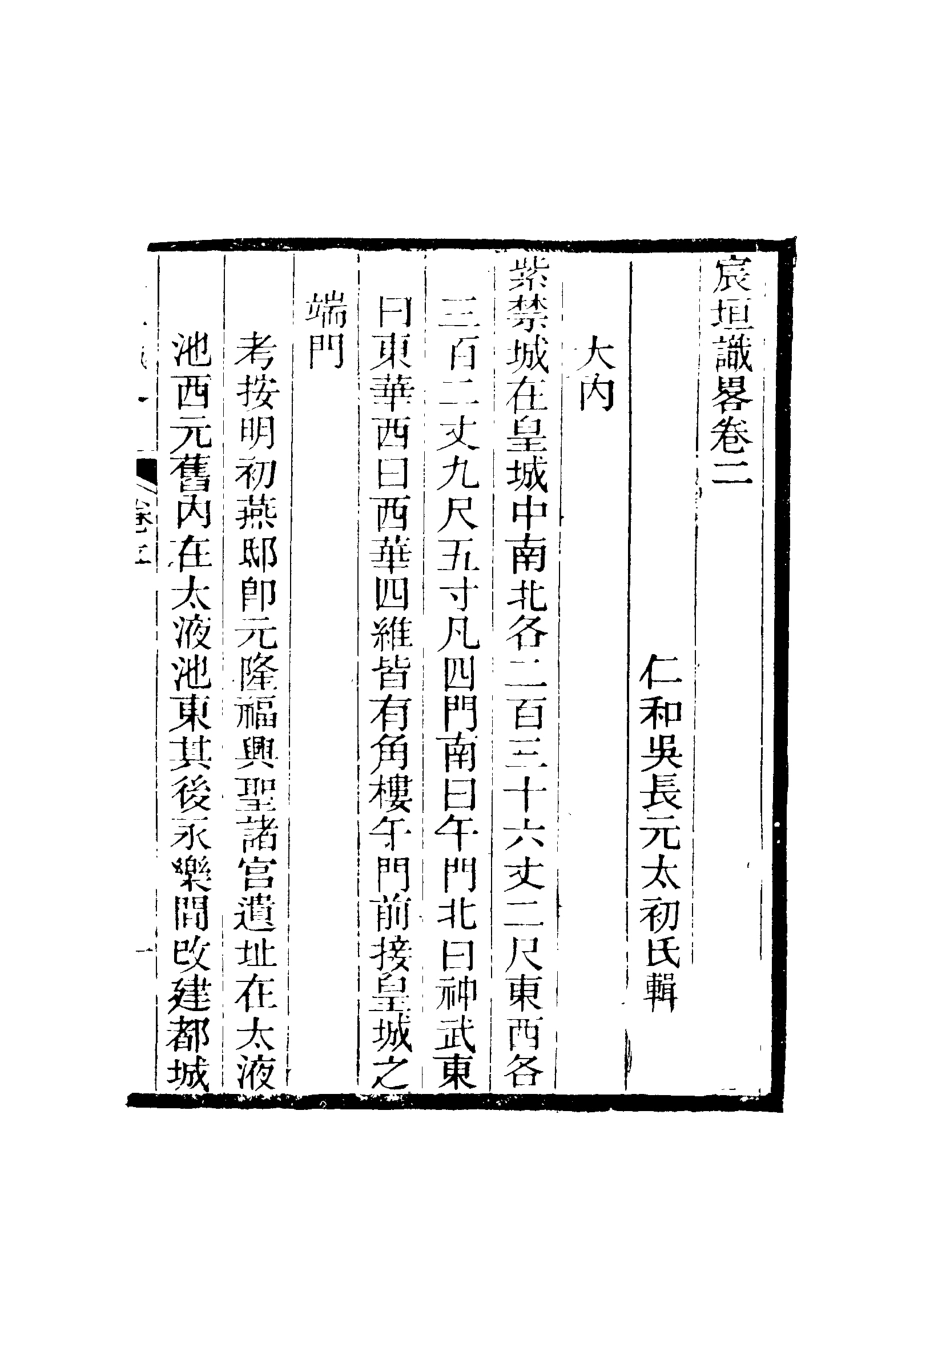 宸垣識畧卷二
仁和吳長元太初氏輯
大內
紫禁城在皇城中南北各二百三十六丈二尺東西各
三百二丈九尺五寸凡四門南曰午門北曰神武東
曰東華西曰西華四維皆有角樓午門前接皇城之
端門
考按明初燕邸卽元隆福興聖諸宮遺址在太液
池西元舊內在太液池東其後永樂間改建都城
卷二
一